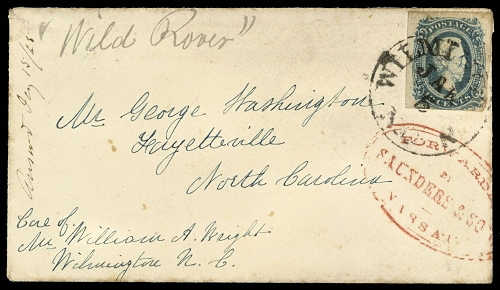 "Wild Rover"
POSTAGE
CENTS
WILMI
JAN
Mr. George Washington
Fayetteville
North Carolina
FORWARD
BY
SAUNDERS & SO
Care of
Mr. William A. Wright
Wilmington N. C.